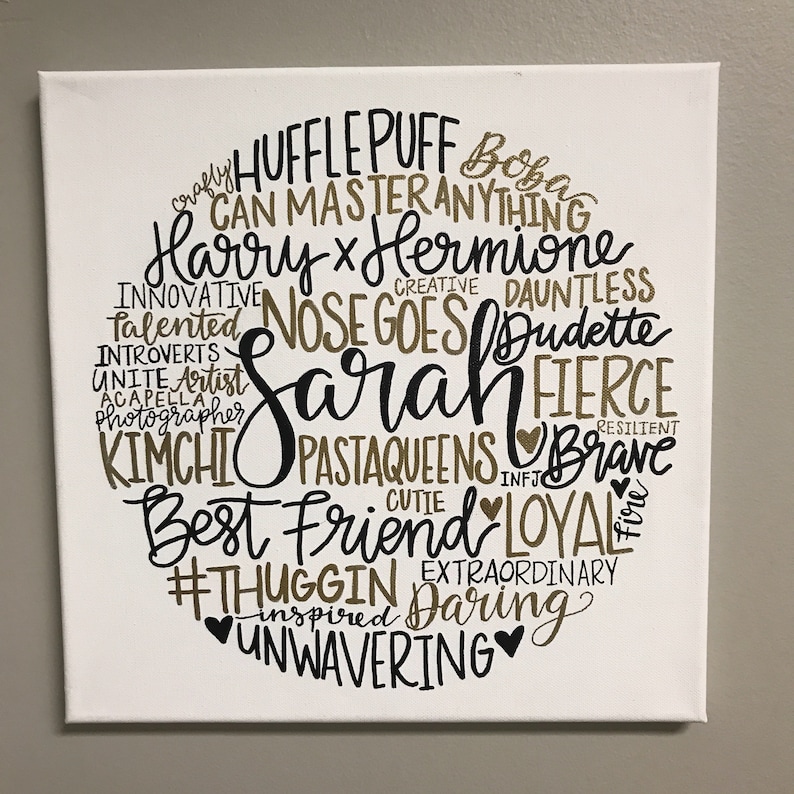 HUFFLEPUFF
Boba
crafty
CAN MASTER ANYTHING
Harry x Hermione
CREATIVE
INNOVATIVE
NOSE GOES
DAUNTLESS
Talented
Dudette
INTROVERTS
UNITE
Artist
Sarah
FIERCE
ACAPELLA
photographer
RESILIENT
KIMCHI
PASTAQUEENS
INFJ
Brave
CUTIE
Best Friend
LOYAL
fire
#THUGGIN
EXTRAORDINARY
inspired
Daring
UNWAVERING